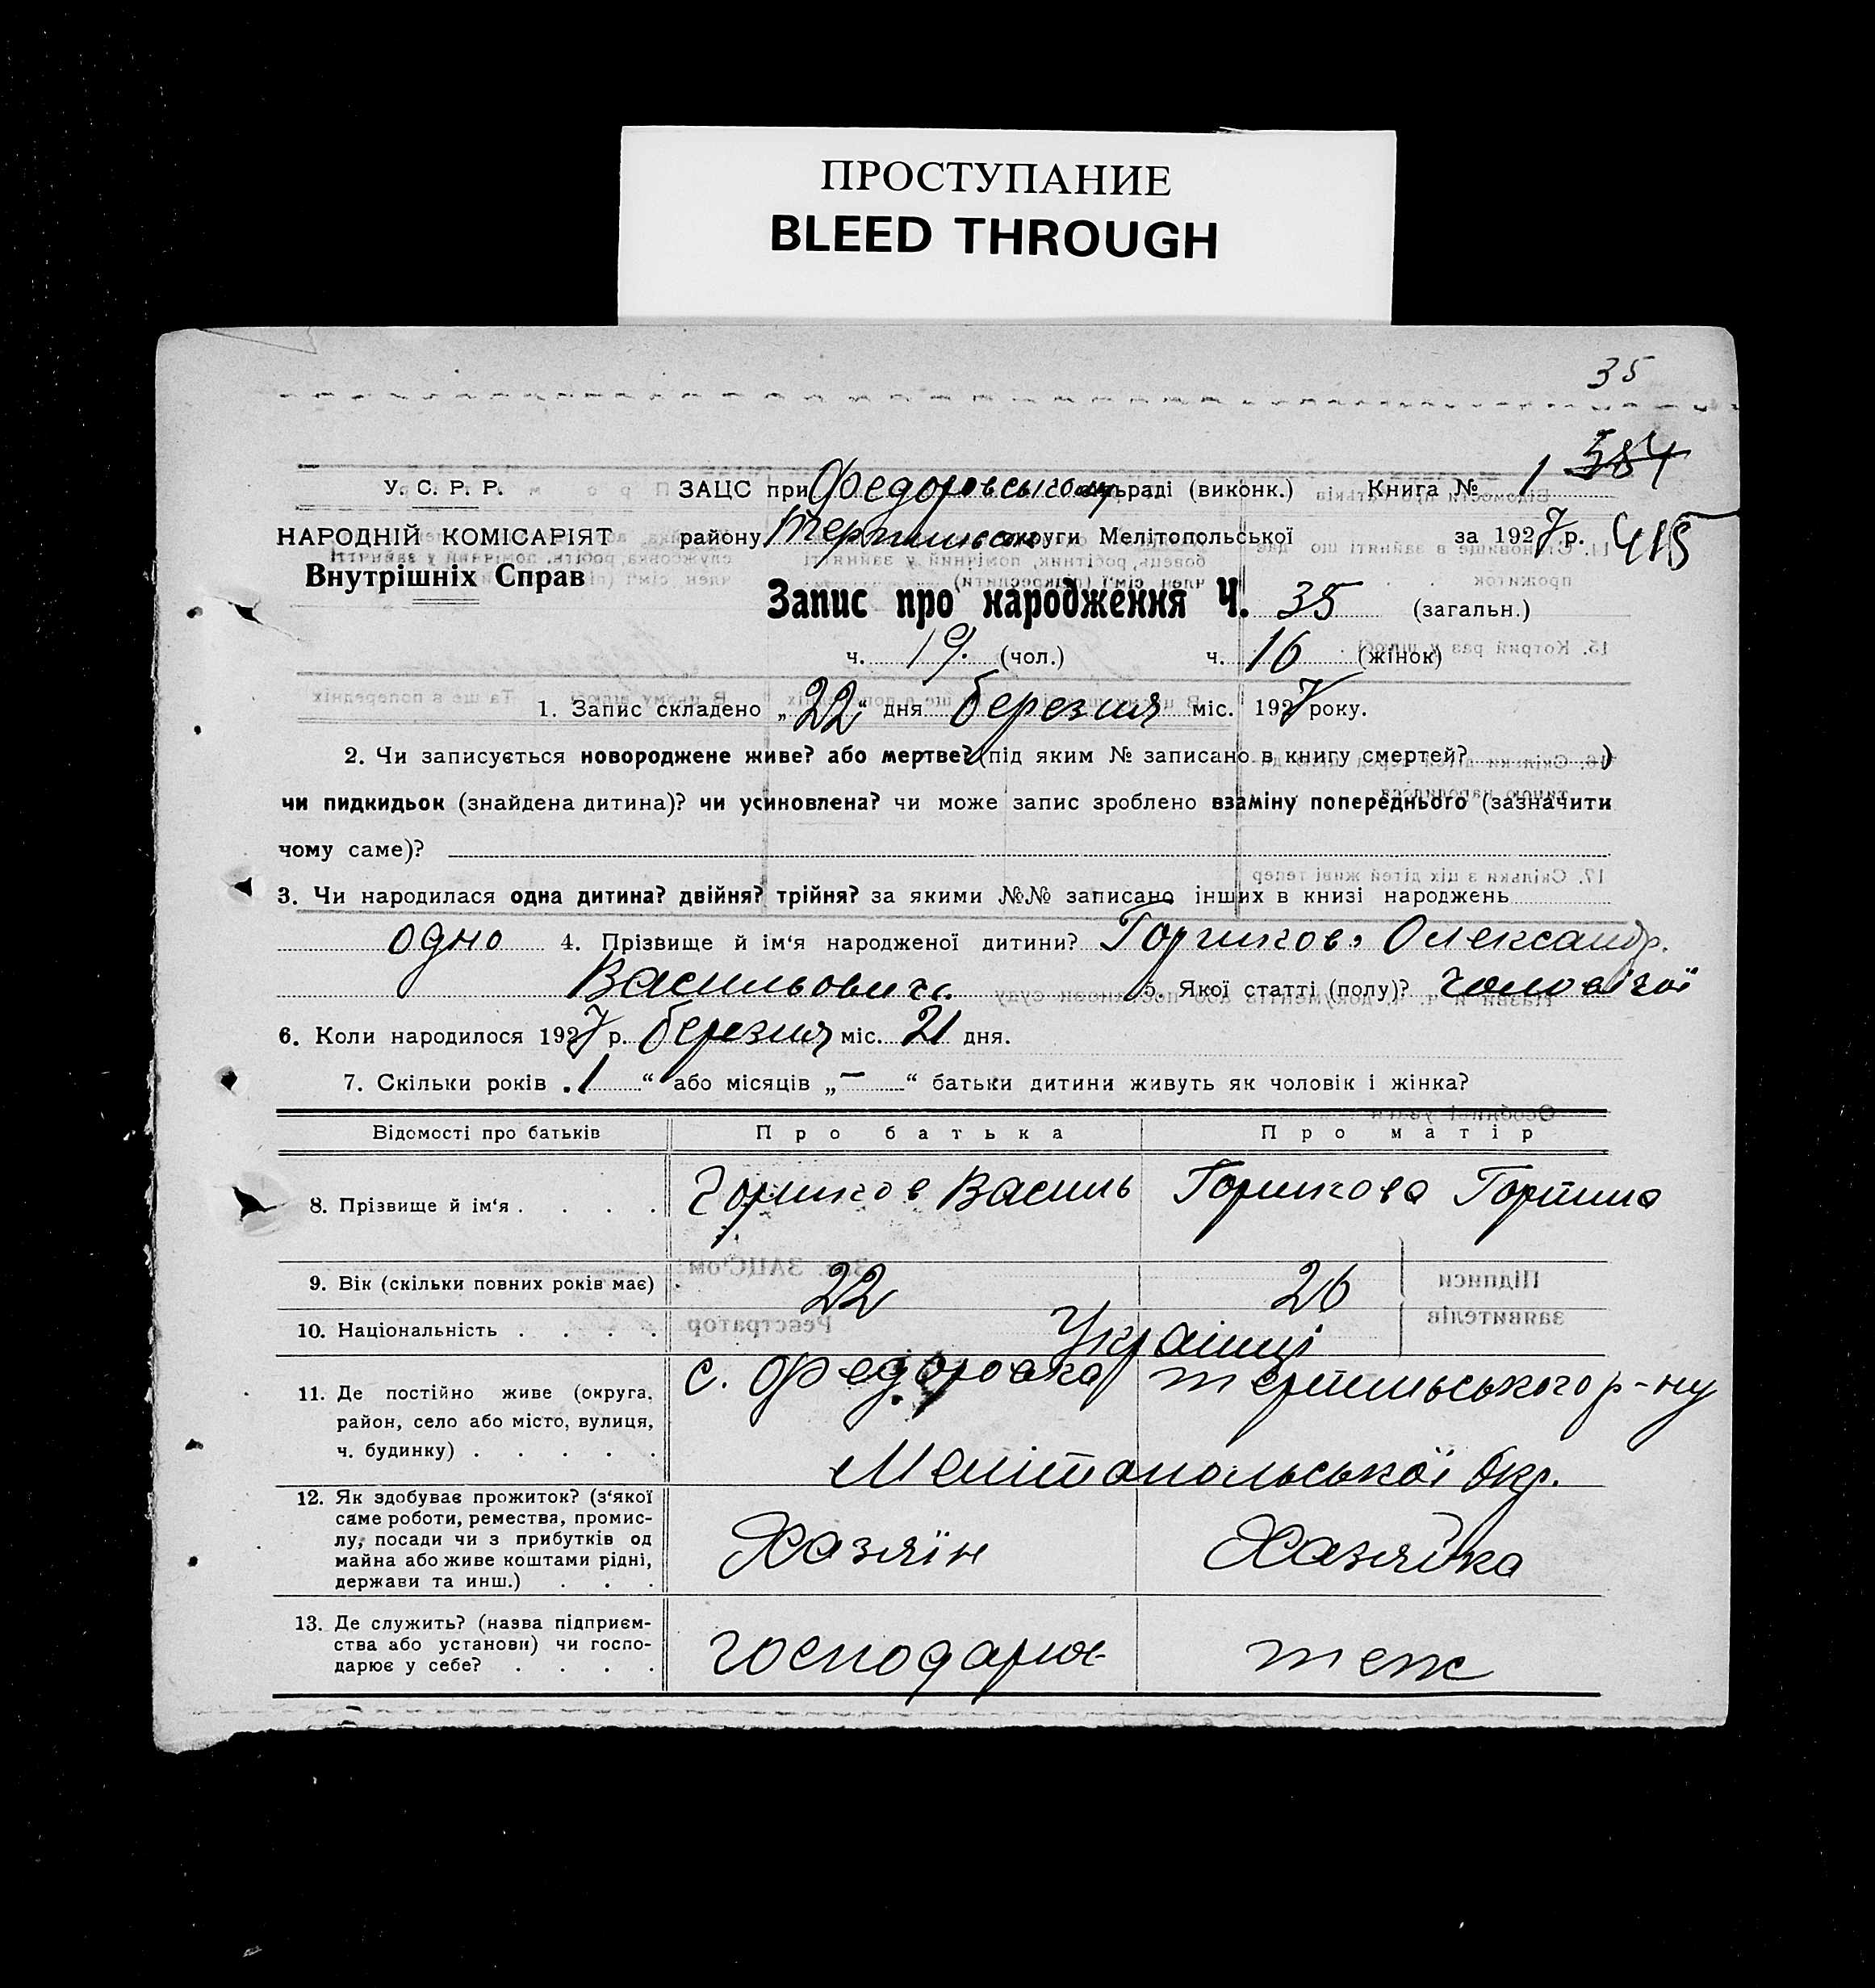 ПРОСТУПАНИЕ
BLEED THROUGH
35
584
У. С. Р. Р.
ЗАЦС при Федоровській сільраді (виконк.) Книга № 1
НАРОДНІЙ КОМІСАРІЯТ
району округи Мелітопольської за 1927 р. 415
Внутрішніх Справ
Запис про народження Ч. 35 (загальн.)
ч. 19. (чол.) ч. 16 (жінок)
1. Запис складено „22“ дня березня міс. 1927 року.
2. Чи записується новороджене живе? або мертве? (під яким № записано в книгу смертей? )
чи пидкидьок (знайдена дитина)? чи усиновлена? чи може запис зроблено взаміну попереднього (зазначити
чому саме)?
3. Чи народилася одна дитина? двійня? трійня? за якими №№ записано інших в книзі народжень
одно 4. Прізвище й ім‘я народженої дитини? Горшков Олександр.
Васильович. 5. Якої статті (полу)? чоловічої
6. Коли народилося 1927 р. березня міс. 21 дня.
7. Скільки років „1“ або місяців „—“ батьки дитини живуть як чоловік і жінка?
Відомості про батьків Про батька Про матір
8. Прізвище й ім‘я . . . . Горшков Василь Горшкова
9. Вік (скільки повних років має) 22 26
10. Національність . . . . Українці
11. Де постійно живе (округа, с. Федоровка р-ну
район, село або місто, вулиця,
ч. будинку) . . . . . Мелітопольської Окр.
12. Як здобуває прожиток? (з‘якої
саме роботи, ремества, промис-
лу, посади чи з прибутків од Хазяїн Хазяйка
майна або живе коштами рідні,
держави та инш.) . . .
13. Де служить? (назва підприєм-
ства або установи) чи госпо- господарює теж
дарює у себе? . . . .